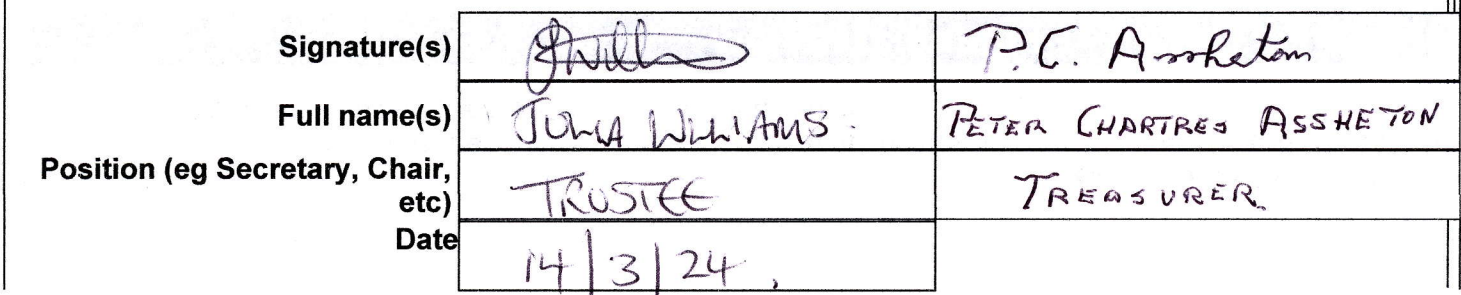 Signature(s) JWilliams P.C. Assheton
Full name(s) JULIA WILLIAMS. PETER CHARTRES ASSHETON
Position (eg Secretary, Chair,
etc) TRUSTEE TREASURER.
Date
14/3/24.